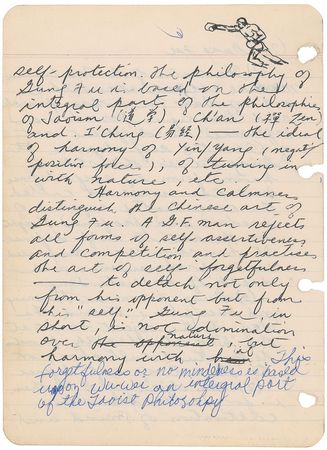 self-protection. The philosophy of
Gung Fu is based on the
integral part of the philosophies
of Taoism (道家), Ch'an (禪 Zen)
and I'Ching (易經) — the ideal
of harmony of Yin/Yang (negat/
positive force), of tuning in
with nature etc
Harmony and calmness
distinguish the Chinese art of
Gung Fu. A G.F. man rejects
all forms of self assertiveness
and competition and practises
the art of self-forgetfulness
— to detach not only
from his opponent but from
his "self." Gung Fu, in
short, is not domination
over the opponent nature, but
harmony with it. This
forgetfulness or no mindedness is based
upon Wu-wei an intergral part
of the Taoist Philosophy